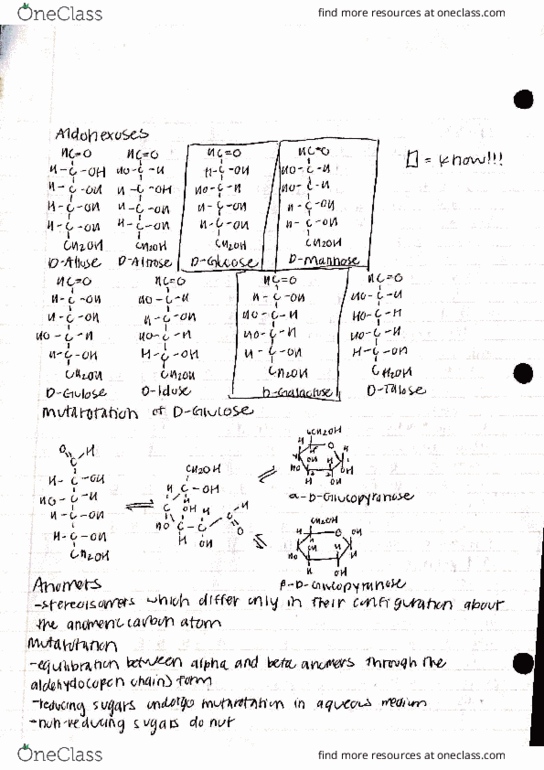 OneClass find more resources at oneclass.com
Aldohexoses
HC=O HC=O HC=O HC=O
H-C-OH HO-C-H H-C-OH HO-C-H □ = know!!!
H-C-OH H-C-OH HO-C-H HO-C-H
H-C-OH H-C-OH H-C-OH H-C-OH
H-C-OH H-C-OH H-C-OH H-C-OH
CH2OH CH2OH CH2OH CH2OH
D-Allose D-Altrose D-Glucose D-Mannose
HC=O HC=O HC=O HC=O
H-C-OH HO-C-H H-C-OH HO-C-H
H-C-OH H-C-OH HO-C-H HO-C-H
HO-C-H HO-C-H HO-C-H HO-C-H
H-C-OH H-C-OH H-C-OH H-C-OH
CH2OH CH2OH CH2OH CH2OH
D-Gulose D-Idose D-Galactose D-Talose
Mutarotation of D-Glucose
O C H
H-C-OH
HO-C-H
H-C-OH
H-C-OH
CH2OH
CH2OH
H C-OH
α-D-Glucopyranose
CH2OH
β-D-Glucopyranose
Anomers
-stereoisomers which differ only in their configuration about
the anomeric carbon atom
Mutarotation
-equilibration between alpha and beta anomers through the
aldehydo(open chain) form
-reducing sugars undergo mutarotation in aqueous medium
-non-reducing sugars do not
OneClass find more resources at oneclass.com